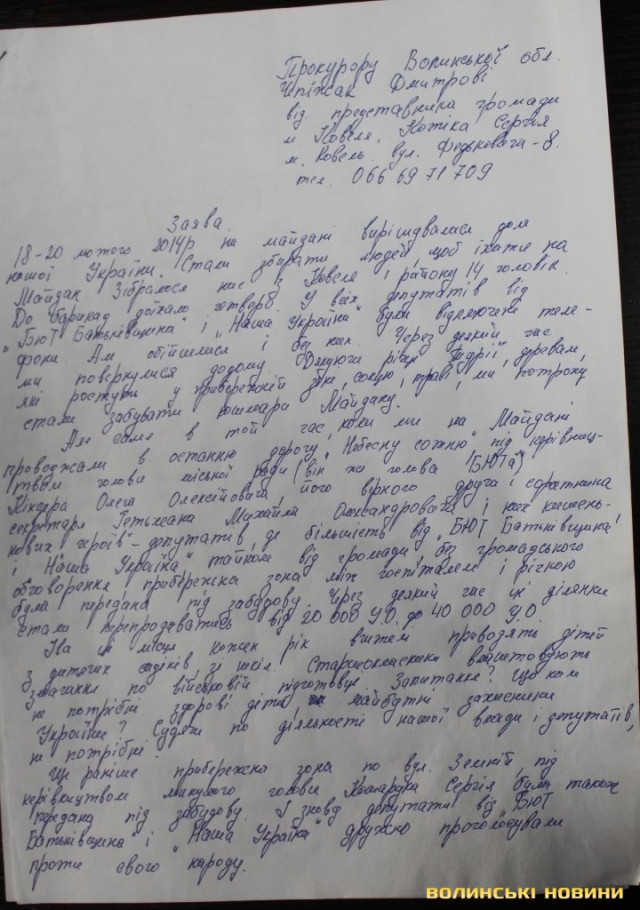 Прокурору Волинської обл.
Шпіжак Дмитрові
від представника громади
м. Ковеля. Котіка Сергія
м. Ковель вул. Федьковича-8.
тел. 066 69 71 709
Заява.
18-20 лютого 2014р на майдані вирішувалася доля
нашої України. Стали збирати людей, щоб їхати на
Майдан. Зібралося нас з Ковеля і району 14 чоловік.
До барикад доїхало четверо. У всіх депутатів від
"БЮТ Батьківщина" і "Наша Україна" були відключені теле-
фони. Але обійшлися і без них. Через деякий час
ми повернулися додому. Дякуючи річці Турії, деревам,
які ростуть у прибережній зоні, сонцю, траві, ми потроху
стали забувати кошмари Майдану.
Але саме в той час, коли ми на Майдані
проводжали в останню дорогу "Небесну сотню" під керівниц-
твом голови міської ради (він же голова БЮТа)
Кіндера Олега Олексійовича, його вірного друга і соратника
секретаря Гетьмана Михайла Олександровича і них кишень-
кових "героїв"- депутатів, де більшість від "БЮТ Батьківщина"
і "Наша Україна" тайком від громади, без громадського
обговорення прибережна зона між госпіталем і річкою
була передана під забудову. Через деякий час ці ділянки
стали перепродаватись від 20 000 У.О. до 40 000 У.О
На це місце кожен рік вчителі привозять дітей
з дитячих садіків, зі шкіл. Старшокласники влаштовують
змагання по військовій підготовці. Запитання? Що нам
не потрібні здорові діти, майбутні захисники
України? Судячи по діяльності нашої влади і депутатів,
не потрібні.
Ще раніше прибережна зона по вул. Земній, під
керівництвом минулого голови Кошарука Сергія була також
передана під забудову. І знову депутати від "БЮТ
Батьківщина" і "Наша Україна" дружно проголосували
проти свого народу.
ВОЛИНСЬКІ НОВИНИ